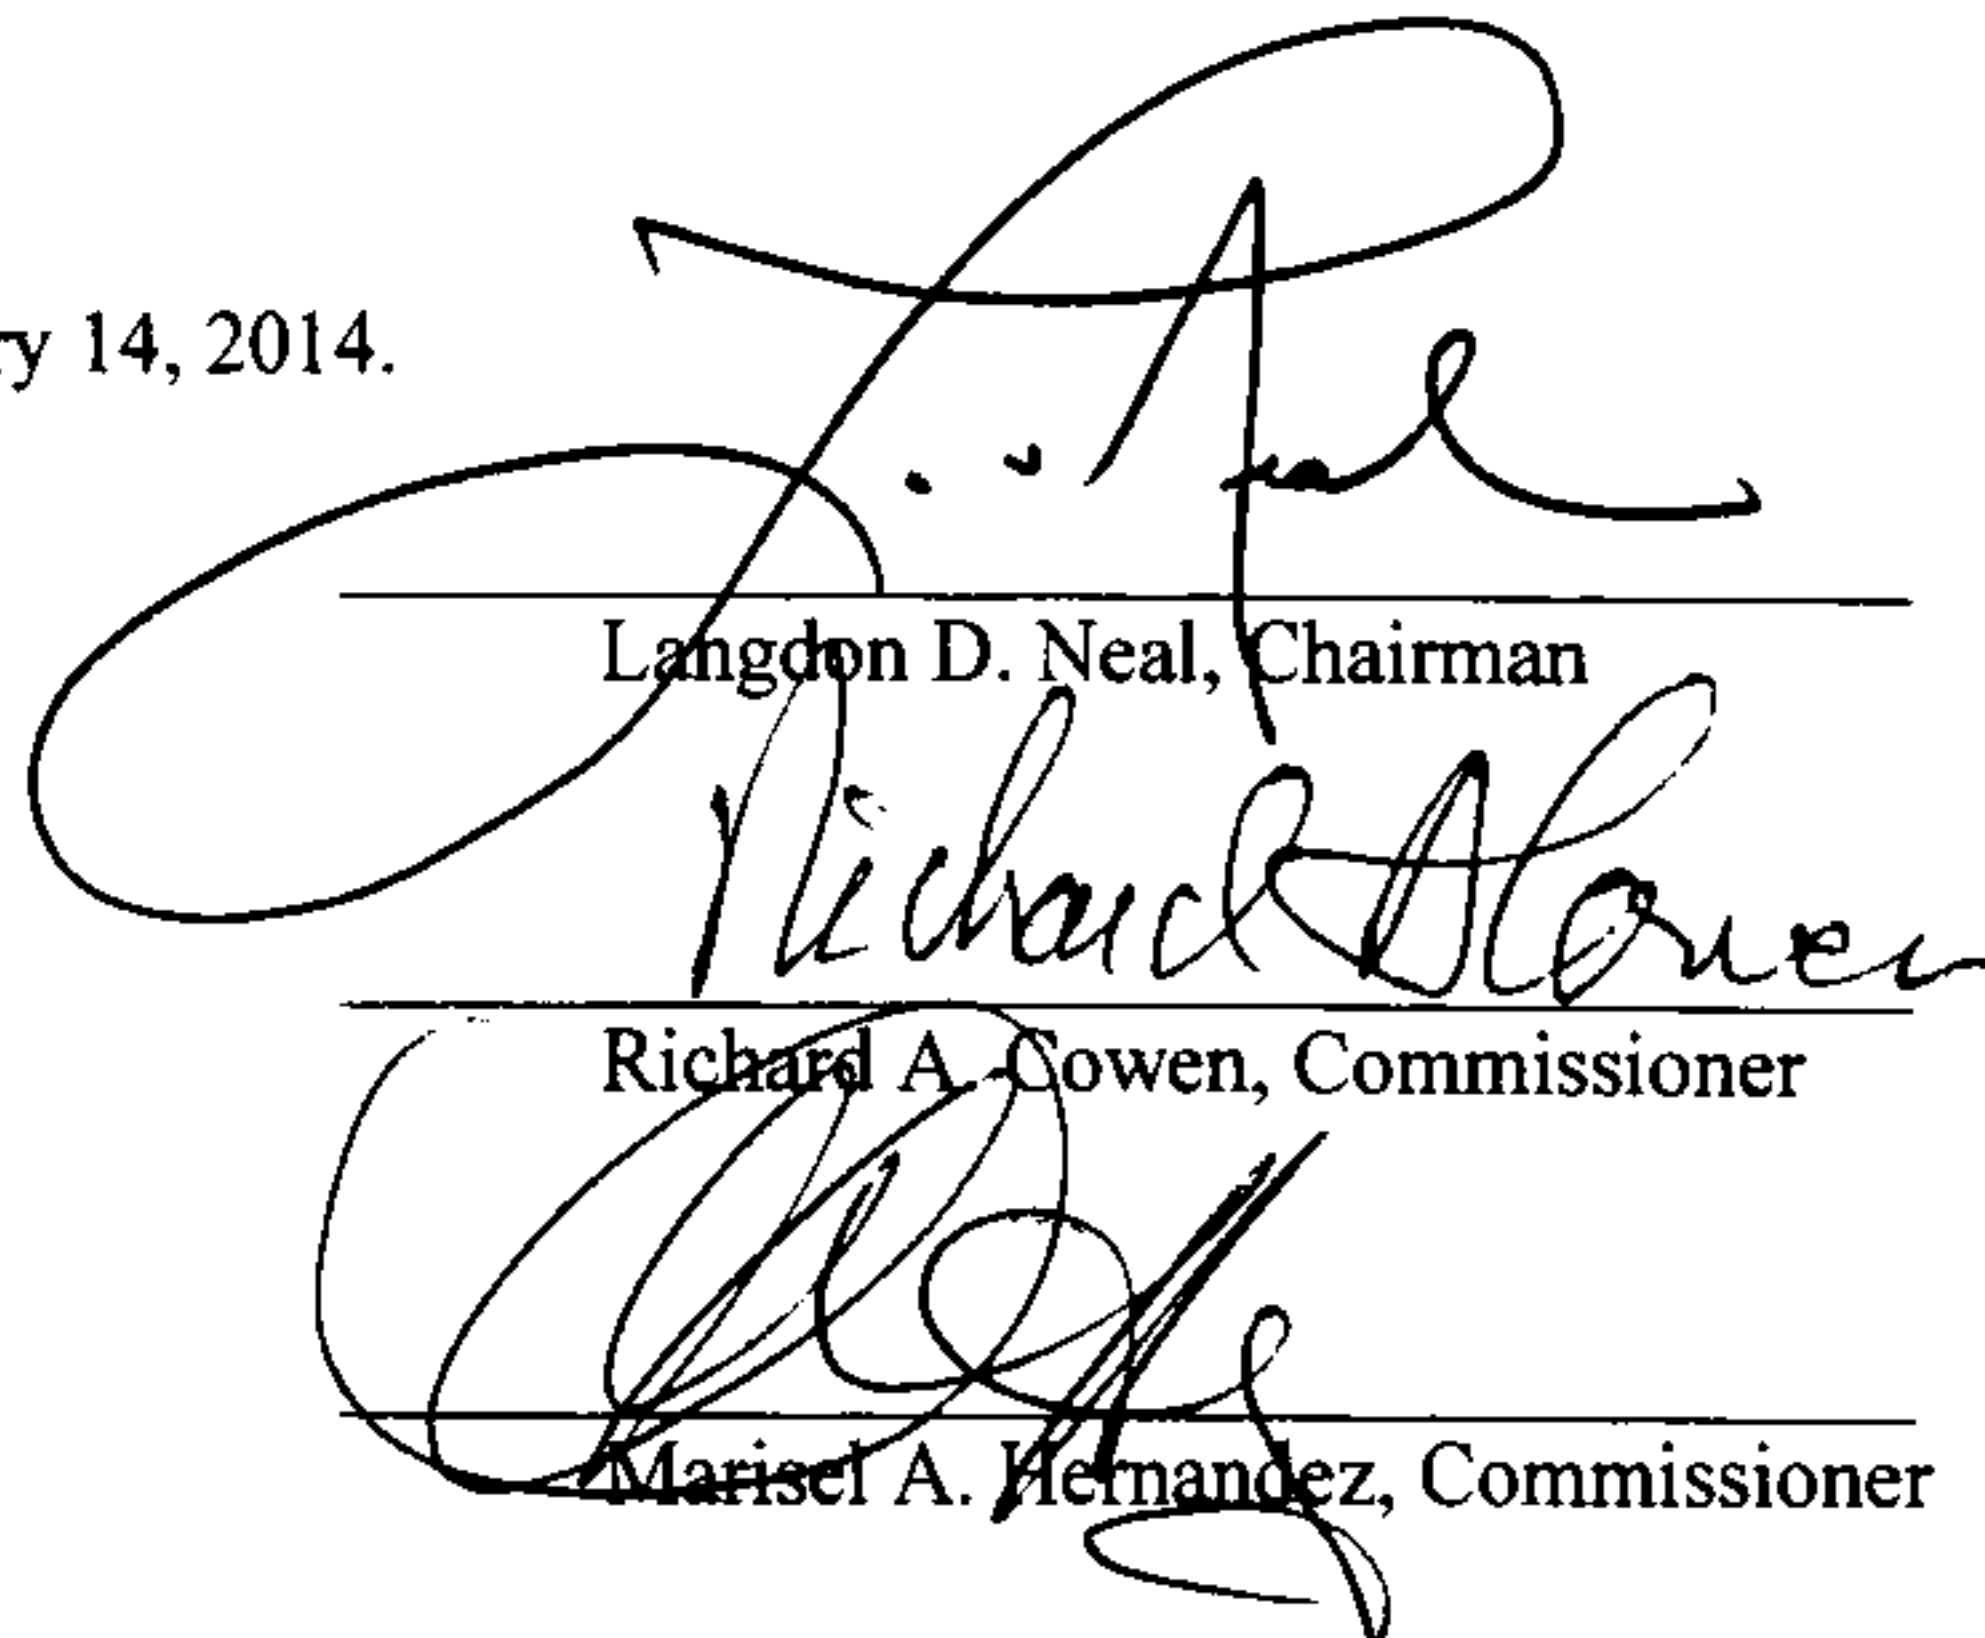 ry 14, 2014.
Langdon D. Neal, Chairman
Richard A. Cowen
Richard A. Cowen, Commissioner
Marisel A. Hernandez, Commissioner